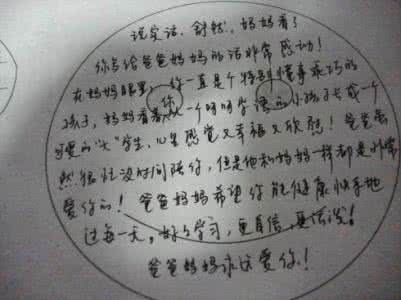 说实话,舒然,妈妈看了
你写给爸爸妈妈的话非常感动!
在妈妈眼里,你一直是个特别懂事乖巧的
孩子,妈妈看着你从一个呀呀学语的小孩子长成一个
可爱的“大”学生,心里感觉又幸福又欣慰!爸爸虽
然很忙没时间陪你,但是他和妈妈一样都是非常
爱你的!爸爸妈妈希望你能健康快乐地
过每一天,好好学习,更自信,更活泼!
爸爸妈妈永远爱你!